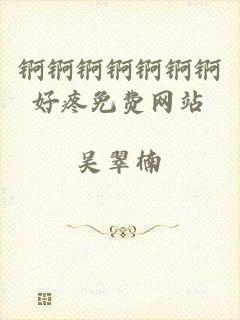 锕锕锕锕锕锕锕
好疼免费网站
吴翠楠